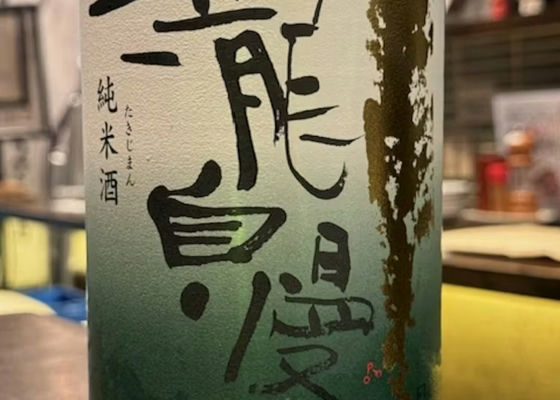 瀧自慢
たきじまん
純米酒